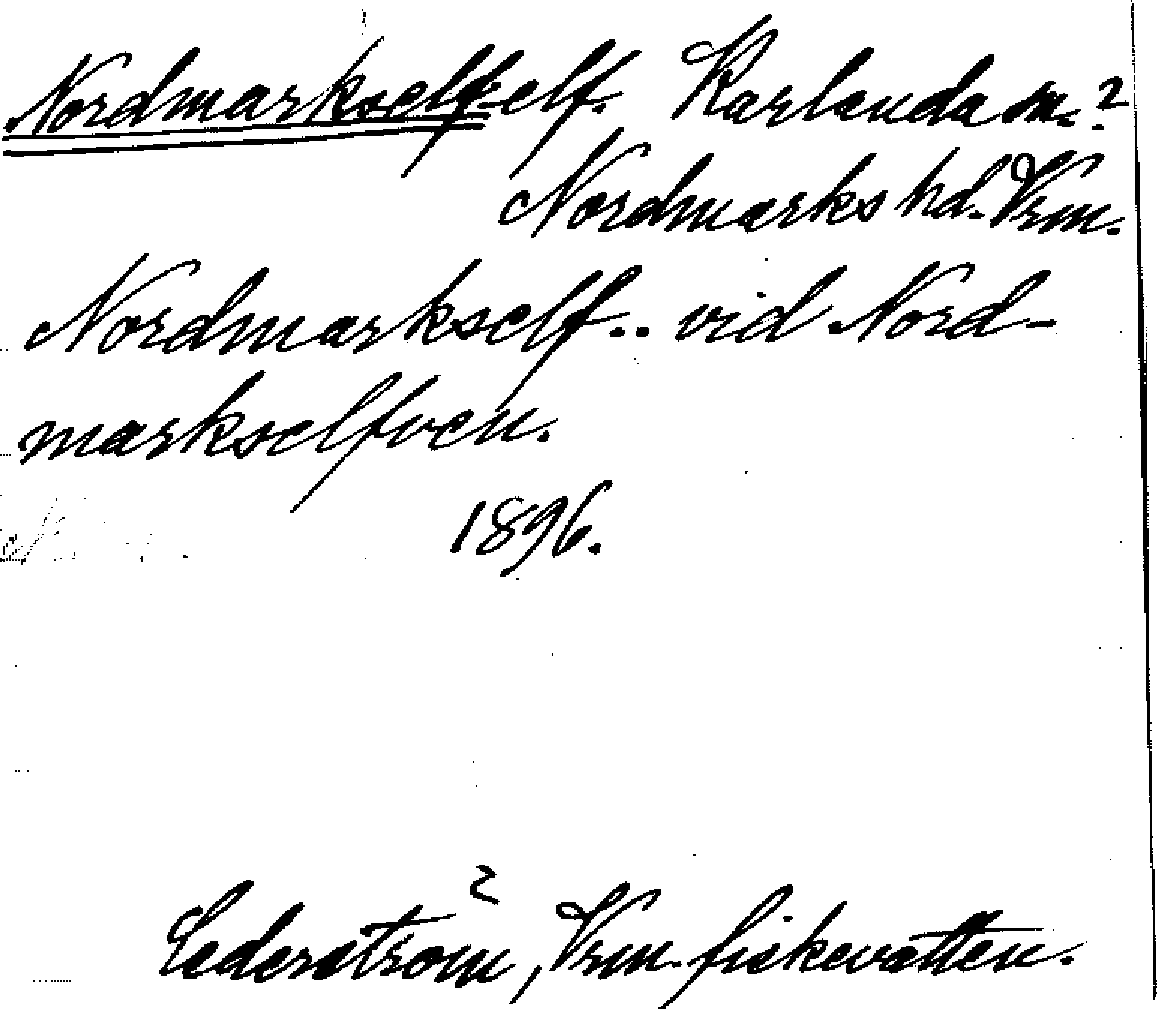 Nordmarkself: elf. Karlanda sn.?
Nordmarks hd. Vrm.
Nordmarkself.. vid Nord-
markselfven.
1896.
2
Cederström, Vrm. fiskevatten.